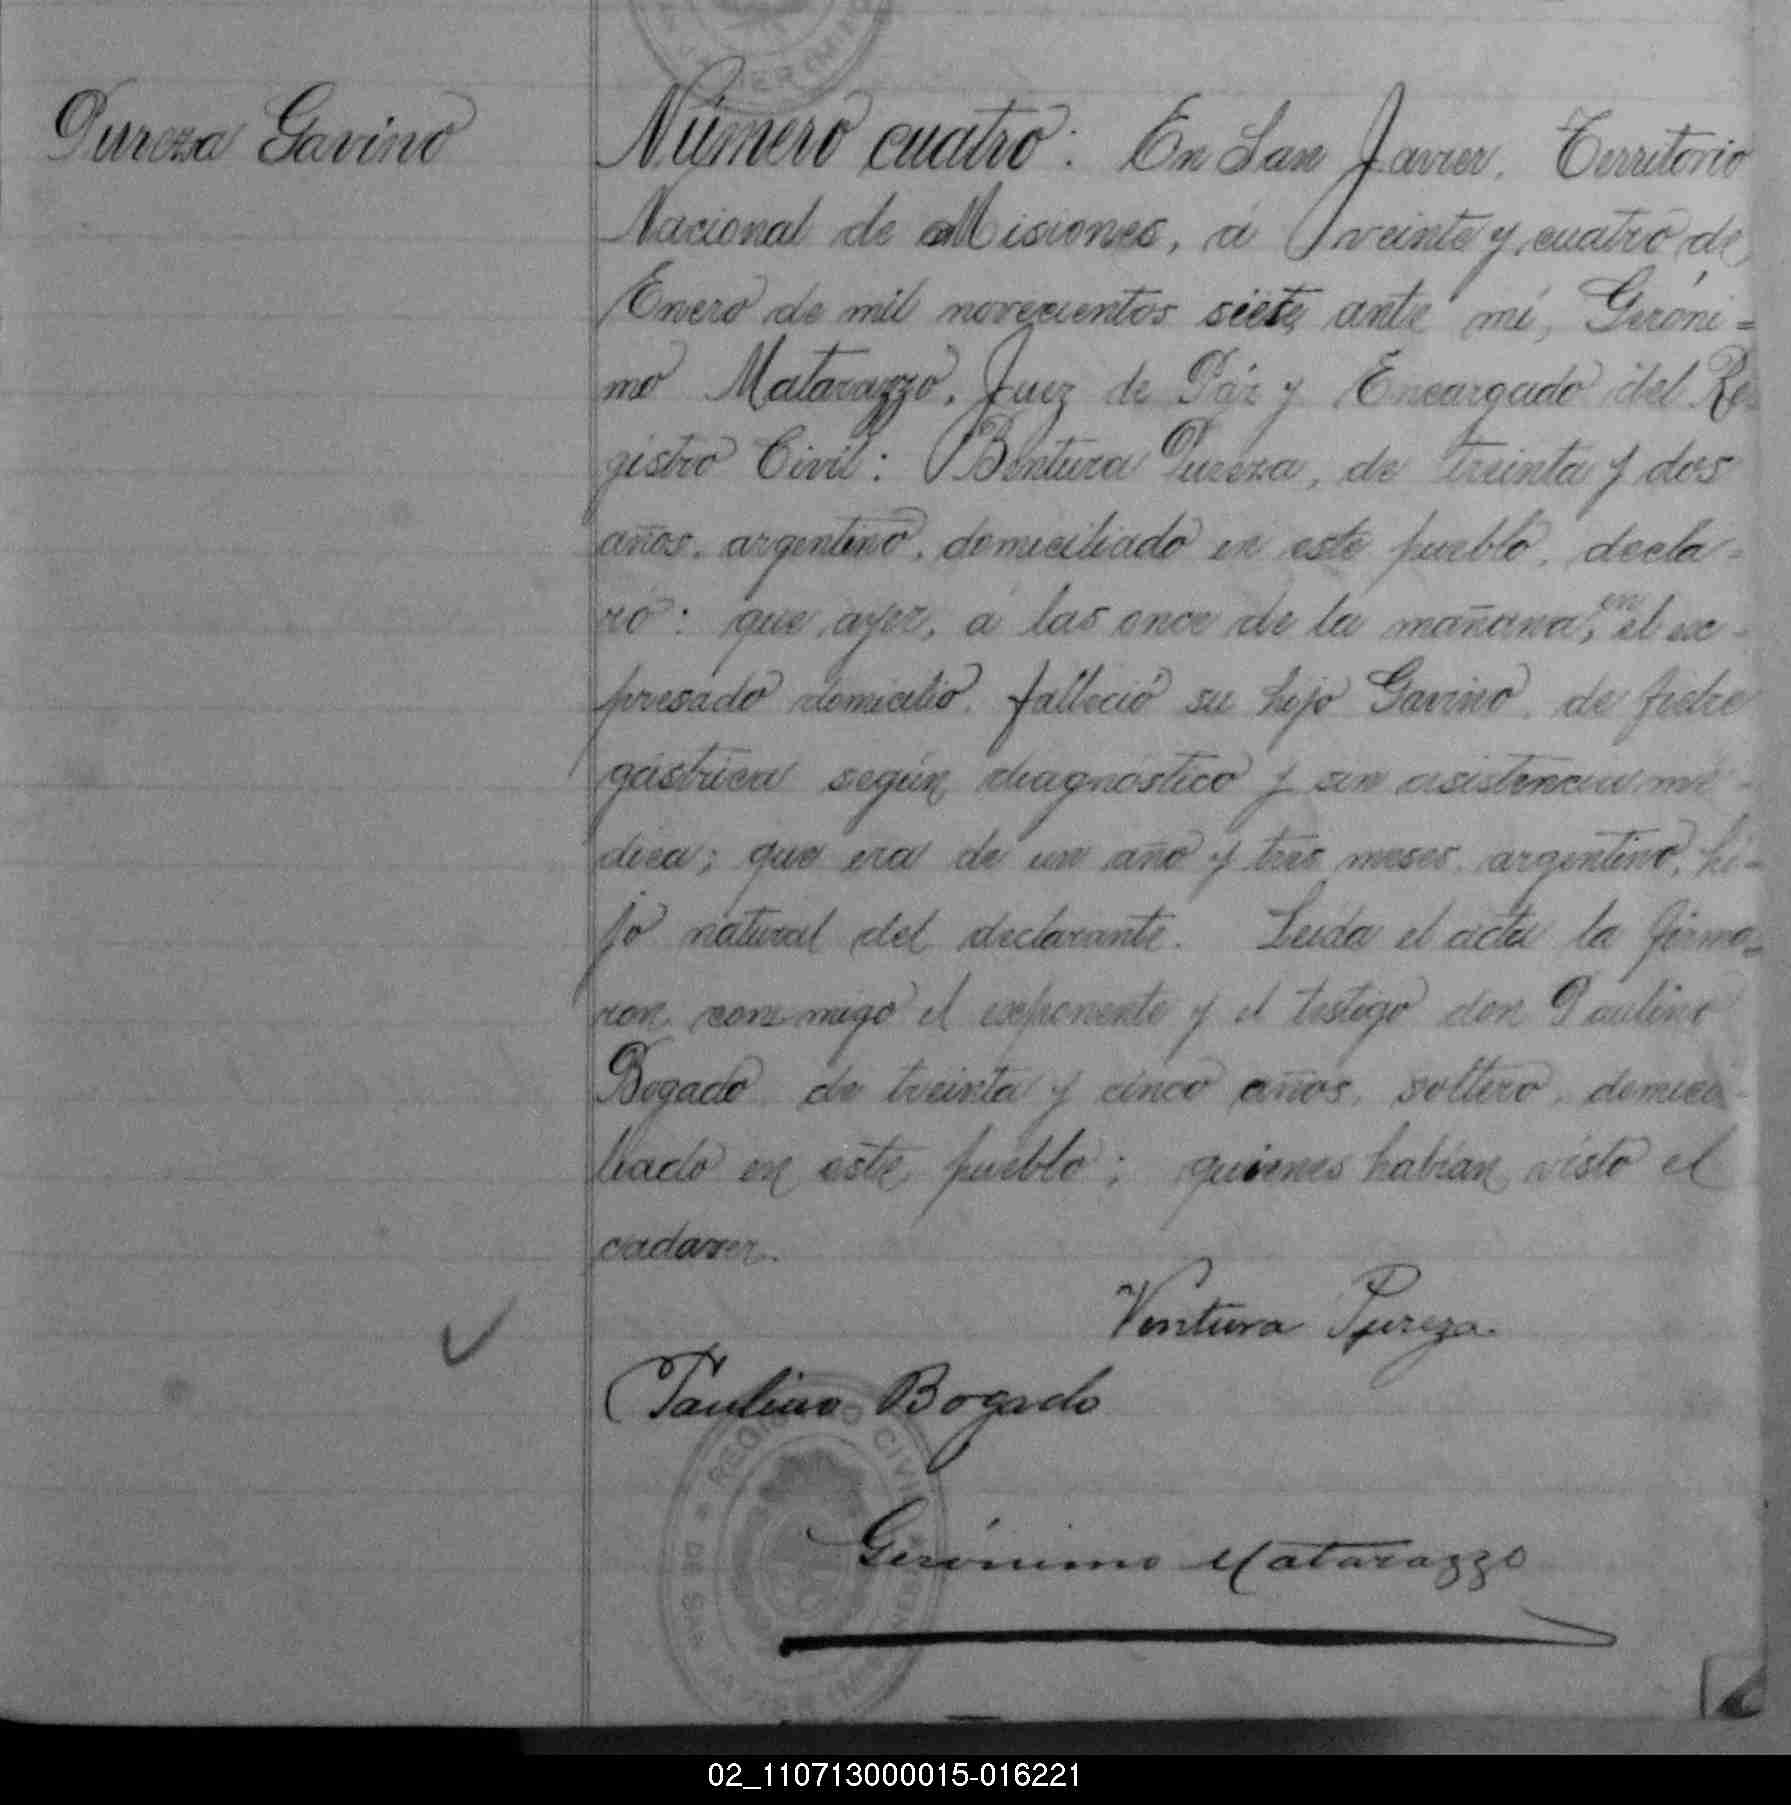 Pureza Gavino
Número cuatro: En San Javier, Territorio
Nacional de Misiones, á veinte y cuatro de
Enero de mil novecientos siete, ante mí, Geróni=
mo Matarazzo, Juez de Páz y Encargado del Re-
gistro Civil: Bentura Pureza, de treinta y dos
años, argentino, domiciliado en este pueblo, decla-
ró: que ayer, á las once de la mañana, en el ex-
presado domicilio, falleció su hijo Gavino, de fiebre
gástrica según diagnóstico y sin asistencia mé-
dica; que era de un año y tres meses, argentino, hi-
jo natural del declarante. Leida el acta la firma-
ron conmigo el exponente y el testigo don Paulino
Bogado, de treinta y cinco años, soltero, domici-
liado en este pueblo; quienes habian visto el
cadaver.
Ventura Pureza.
Paulino Bogado
REGISTRO CIVIL
Gerónimo Matarazzo
02_110713000015-016221